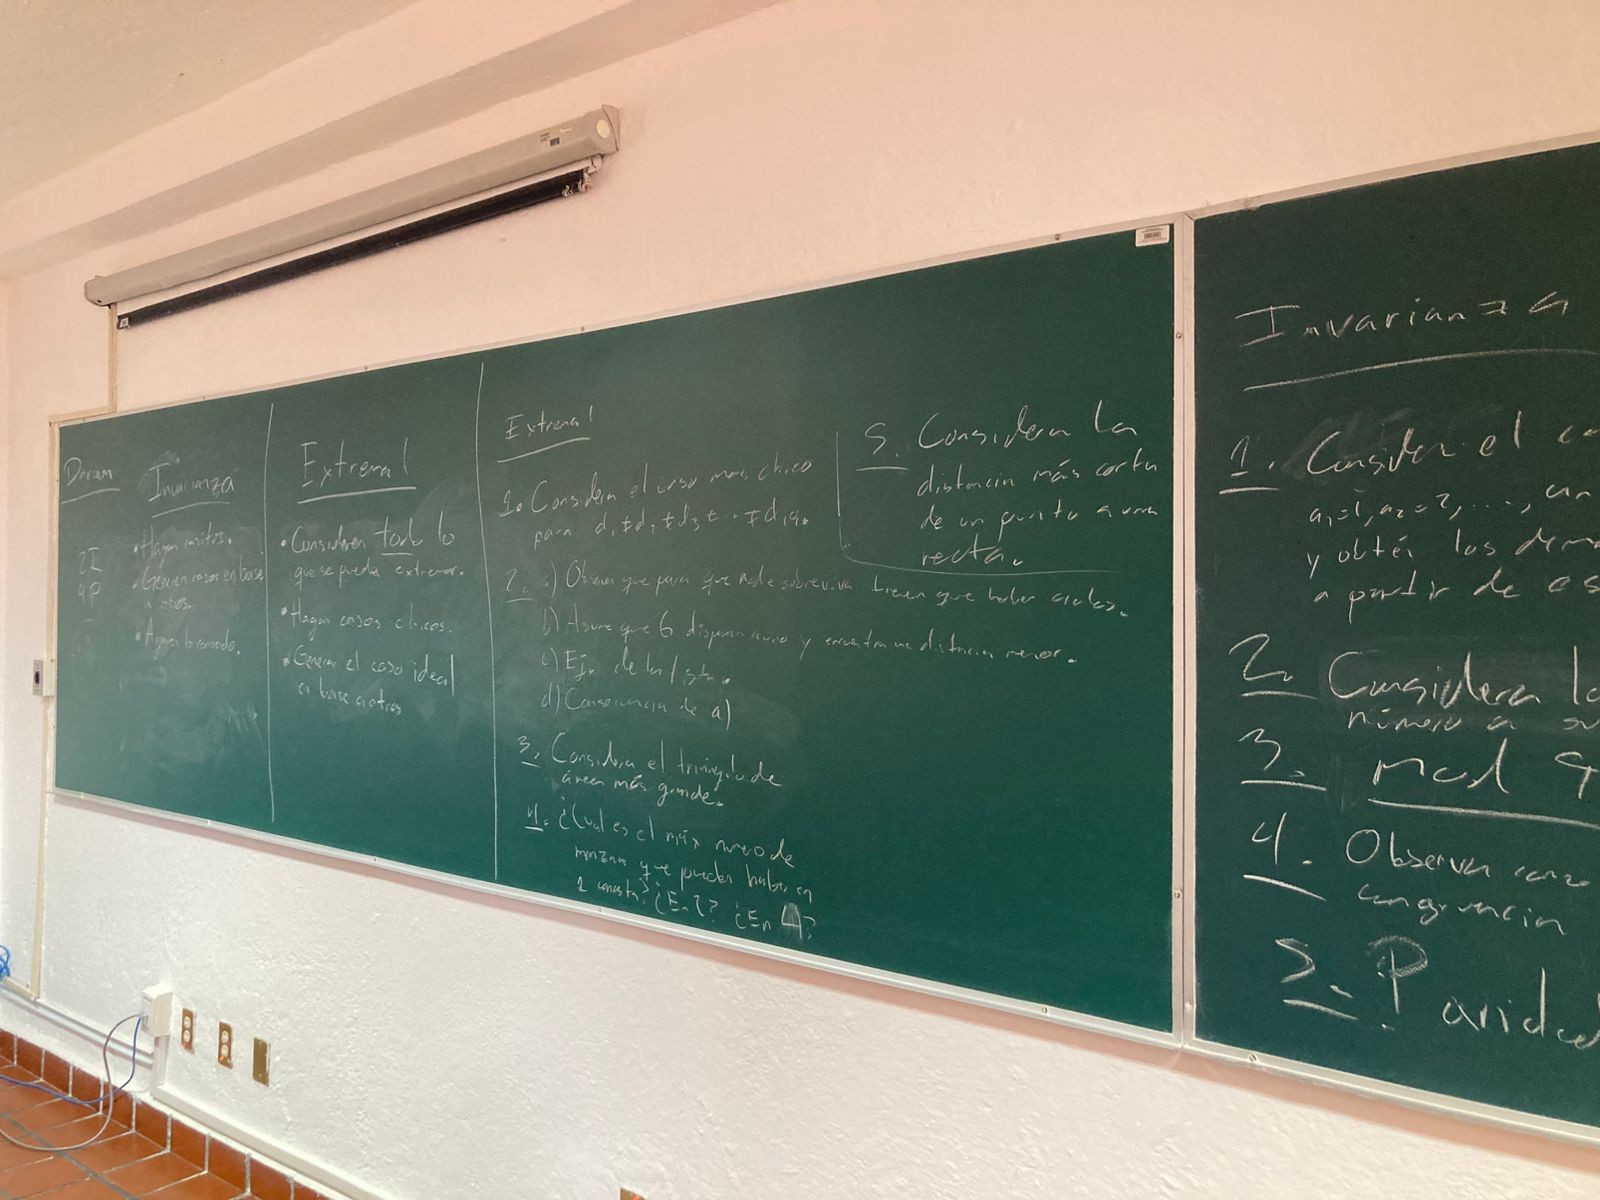 Invarianza
• Hagan casitos.
• Generen casos en base
a otros.
• Agarren lo conocido.
2I
4P
Extremal
• Consideren todo lo
que se pueda extremar.
• Hagan casos chicos.
• Generar el caso ideal
en base a otros
Extremal
1. Considera el caso mas chico
para d₁ ≠ d₂ ≠ d₃ ≠ ... ≠
2. a) Observa que para que nadie sobreviva tienen que haber ciclos.
b) Asume que 6 disparan a uno y encuentra una distancia menor.
c) Ej. de la lista.
d) Consecuencia de a)
3. Considera el triángulo de
área más grande.
4. ¿Cual es el máx numero de
manzanas que pueden haber en
1 canasta? ¿En 2? ¿En 4?
5. Considera la
distancia más corta
de un punto a una
recta.
Invarianza
1. Consider el
a₁=1, a₂=2, ...,
y obtén los
a partir de
2. Considera
número a
3. mod 9
4. Observa como
congruencia
5. Paridad